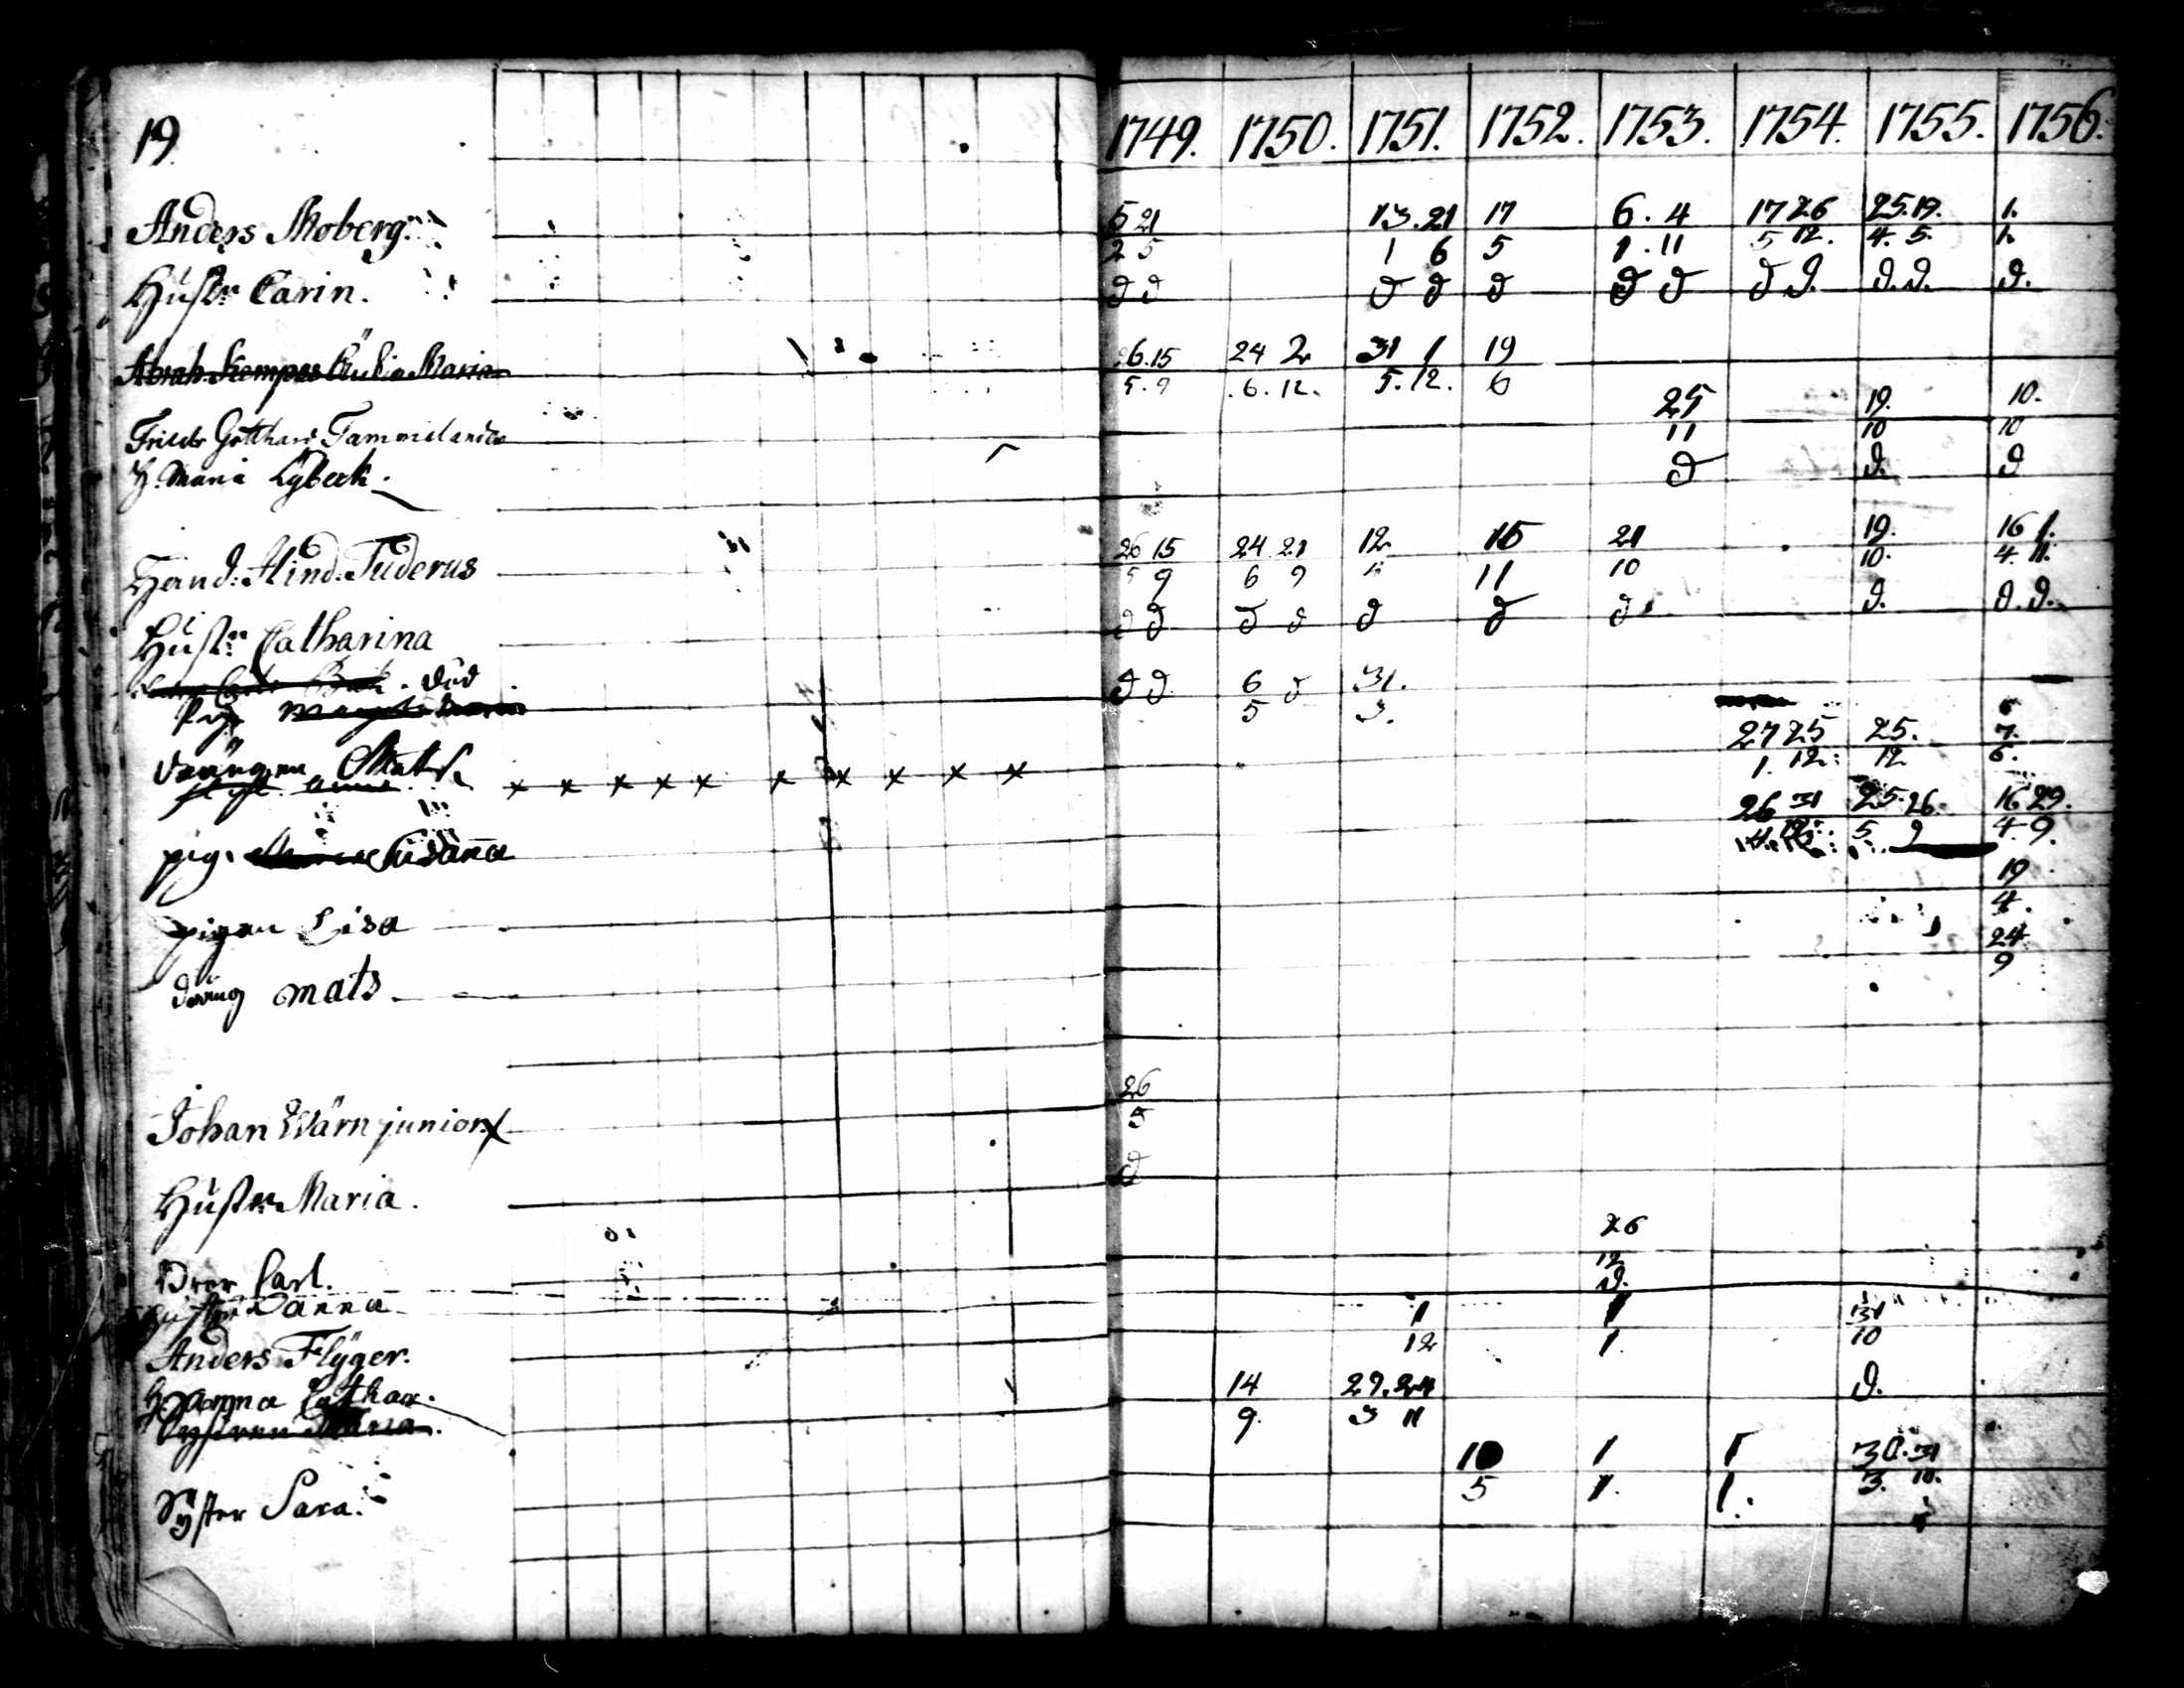 19.
1749. 1750. 1751. 1752. 1753. 1754. 1755. 1756.
Anders Moberg. 5 21 13. 21 17 6. 4 17 26 25. 19. 1.
2 5 1 6 5 1. 11 5 12. 4. 5. 1.
Hustr Carin. d d d d d d d d d. d. d. d.
Abrah. Kempes Maria 26. 15 24 2 31 1 19
5. 9 6. 12. 5. 12. 6
Fridr Gotthard Tammelander 25 19. 10.
11 10 10
H. Maria Lybeck. d d. d
Hand: Hind: Tuderus 26 15 24 21 12 15 21 19. 16 1.
5 9 6 9 11 10 10. 4. 11.
Hustr Catharina d d d d d d d d. d. d.
död d d 6 d 31.
pig. 5 3.
drängen Mats. 27 25 25. 7.
x x x x x x x x x x 1. 12. 12 6.
pig. Susana 26 31 25. 26. 16 29.
5 9 4 9.
pigan Lisa 19
4.
dräng mats 24
9
Johan Wärn junior x 26
5
Hustr Maria. d
Bror Carl. 26
12
Hustr Danna d.
Anders Flyger. 1 1 31
12 1. 10
H. Anna Cathar. 14 29. 24 d.
Systren Maria. 9. 3 11
Syster Sara. 10 1 1 30. 31
5 1. 1. 3. 10.